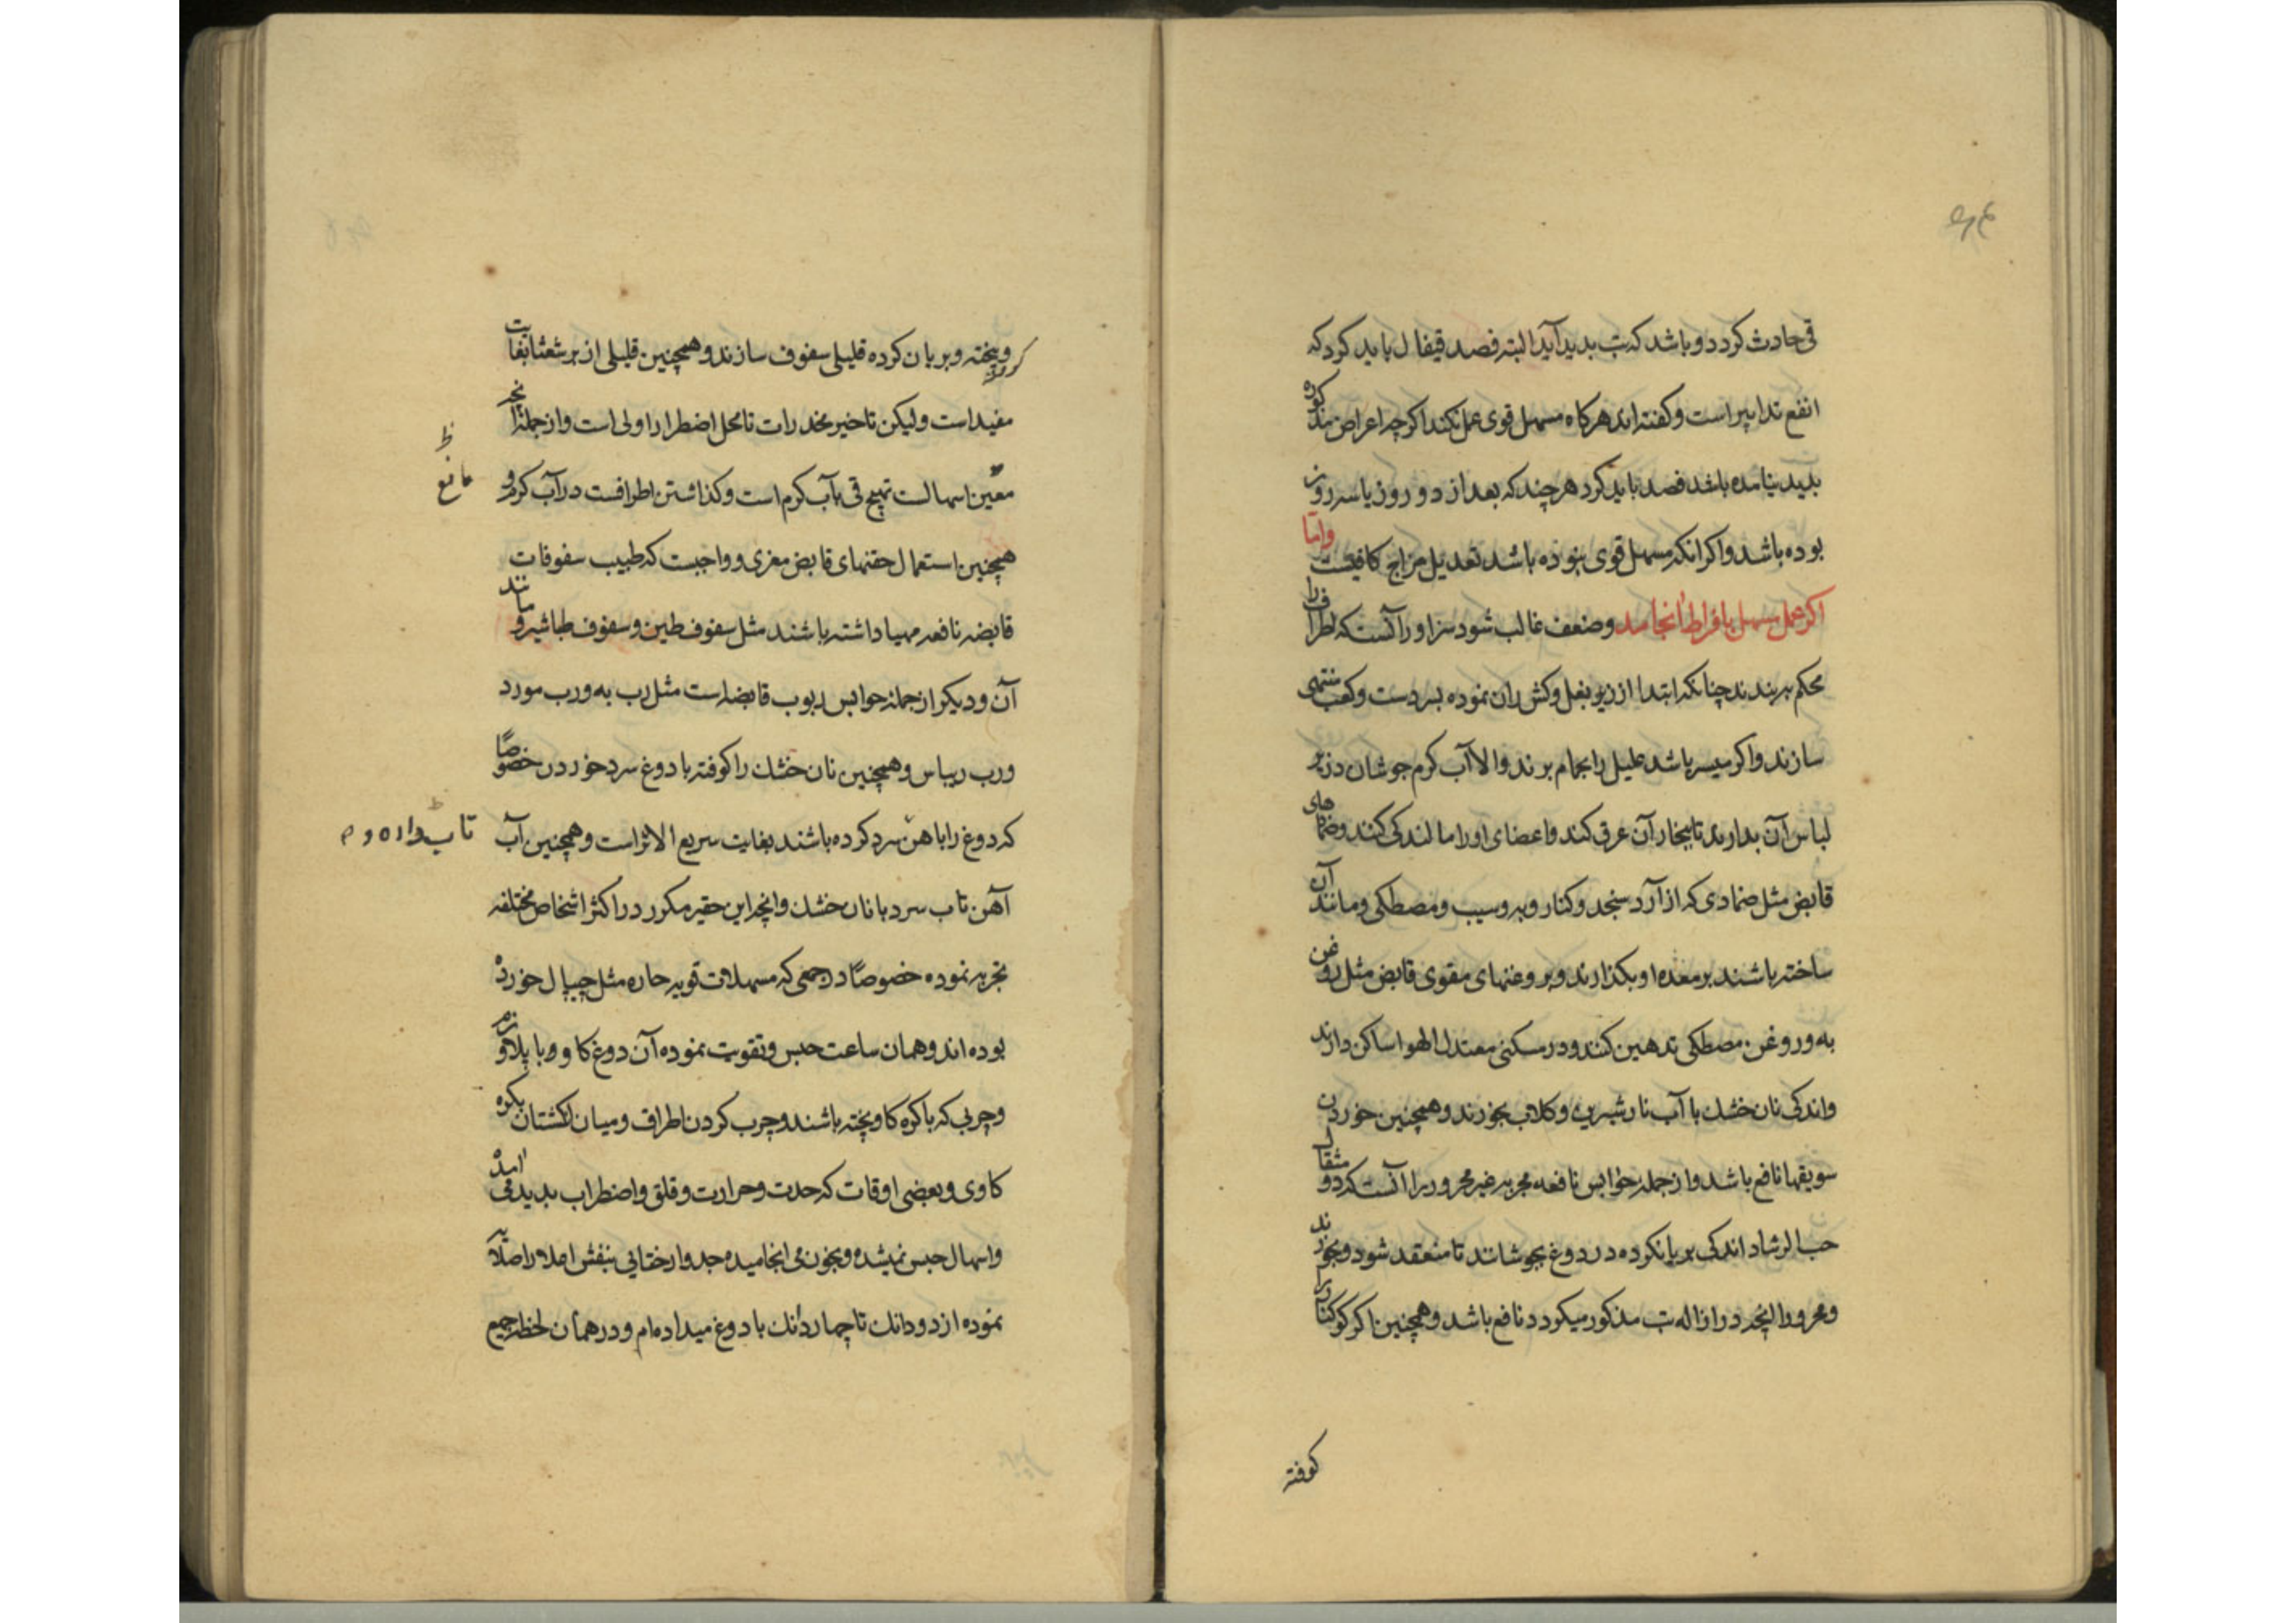 قی حادث کردد و باشد که تب بدید آید البته فصد قیفال باید کرد که
انفع تدابیر است و کفته‌اند هرکاه مسهل قوی عمل نکند اکرچه اعراض مذکوره
بدید نیامده باشد فصد باید کرد هرچند که بعد از دو روز یا سه روز
بوده باشد و اکر انکه مسهل قوی نبوده باشد تعدیل مزاج کافیست واما
اکر عمل مسهل بافراط انجامد و ضعف غالب شود سزاوار آنست که اطراف را
محکم بربندند چنانکه ابتدا از زیر بغل و کش ران نموده بدست و کعب منتهی
سازند و اکر میسر باشد علیل را بحمام برند والا آب کرم جوشان در زیر
لباس آن بدارند تا ببخار آن عرق کند و اعضای او را مالندکی کنند و ضمادهای
قابض مثل ضمادی که از آرد سنجد و کنار و به و سیب و مصطکی و مانند آن
ساخته باشند بر معده او بکذارند و بروغنهای مقوی قابض مثل روغن
به و روغن مصطکی تدهین کنند و در مسکنی معتدل الهوا ساکن دارند
واندکی نان خشک با آب نار شیرین و کلاب بخورند و همچنین خوردن
سویقها نافع باشد و از جمله حوابس نافعه مجربه غیر محرور را آنست که دو مثقال
حب الرشاد اندکی بریانکرده در دوغ بجوشانند تا منعقد شود و بخورند
و محرور را انچه در ازاله تب مذکور میکردد نافع باشد و همچنین اکر کوکنار را
کوفته
کوفته و پخته و بریان کرده قلیلی سفوف سازند و همچنین قلیلی از برشعثا بغایت
مفید است ولیکن تاخیر مخدرات تا محل اضطرار اولی است و از جمله انچه
معین اسهالست تهیج قی بآب کرم است و کذاشتن اطرافست در آب کرم و
همچنین استعمال حقنهای قابض مغری و واجبست که طبیب سفوفات
قابضه نافعه مهیا داشته باشند مثل سفوف طین و سفوف طباشیر و مانند
آن و دیکر از جمله حوابس ربوب قابضه است مثل رب به و رب مورد
و رب ریباس و همچنین نان خشک را کوفته با دوغ سرد خوردن خصوصاً
که دوغ را باهن سرد کرده باشند بغایت سریع الاثر است و همچنین آب
آهن تاب سرد با نان خشک و انچه این حقیر مکرر در اکثر اشخاص مختلفه
تجربه نموده خصوصاً در جمعی که مسهلات قویه حاره مثل جیپال خورده
بوده‌اند و همان ساعت حبس و تقویت نموده آن دوغ کاو و با پلاو نرم
و چربی که باکره کاو پخته باشند و چرب کردن اطراف و میان انکشتان بکره
کاوی و بعضی اوقات که حدت و حرارت و قلق و اضطراب بدید امده قی
و اسهال حبس نمیشده و بخون می انجامیده جدوار ختایی بنفش اعلا را صلایه
نموده از دو دانك تا چهار دانك با دوغ میداده‌ام و در همان لحظه جمیع
ظ
مانع
تاب داده